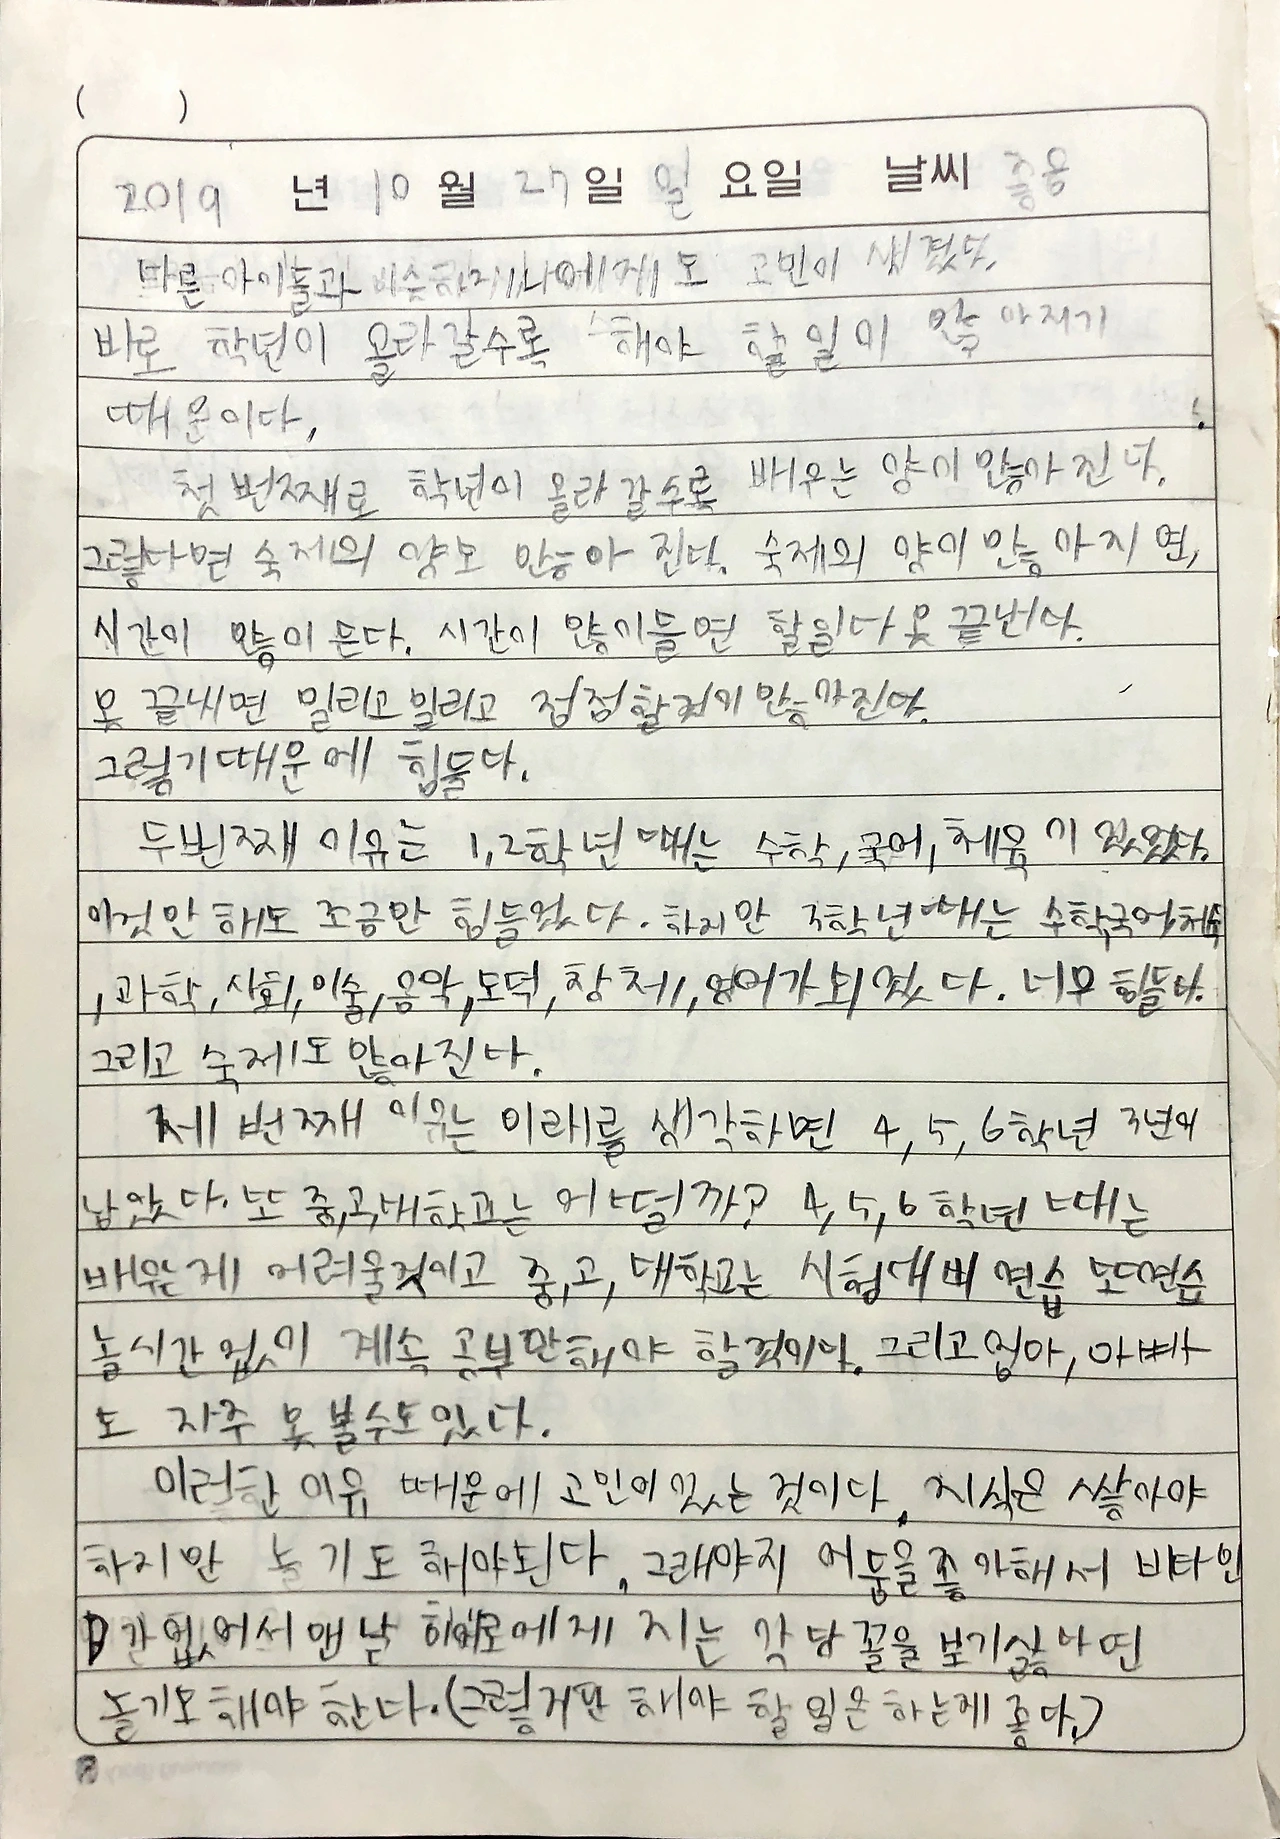 ( )
2019 년 10 월 27 일 일 요일 날씨 춥웅
따른 아이들과 비슷하게 나에게도 고민이 생겼다.
바로 학년이 올라갈수록 해야 할 일이 많아지기
때문이다.
첫 번째로 학년이 올라 갈수록 배우는 양이 많아 진다.
그렇다면 숙제의 양도 많아 진다. 숙제의 양이 많아지면,
시간이 많이 든다. 시간이 많이들면 할일다 못 끝낸다.
못 끝내면 밀리고 밀리고 점점할것이 많아진다.
그렇기때문에 힘들다.
두번째 이유는 1,2학년때는 수학,국어,체육이 있었다.
이것만 해도 조금만 힘들었다. 하지만 3학년때는 수학국어체육
,과학,사회,미술,음악,도덕,창체,영어가되었다. 너무 힘들다.
그리고 숙제도 많아진다.
세 번째 이유는 미래를 생각하면 4,5,6학년 3년이
남았다. 또 중,고,대학교는 어떨까? 4,5,6학년 때는
배우는게 어려울것이고 중,고,대학교는 시험대비 연습 또연습
놀시간 없이 계속 공부만해야 할것이다. 그리고 엄마, 아빠
도 자주 못 볼수도있다.
이러한 이유 때문에 고민이있는 것이다. 지식은 쌓아야
하지만 놀기도 해야된다. 그래야지 어둠을좋아해서 비타민
D가없어서 맨날 해에게 지는 각담꼴을 보기싫다면
놀기도해야 한다.(그렇지만 해야 할 일은 하는게 좋다.)